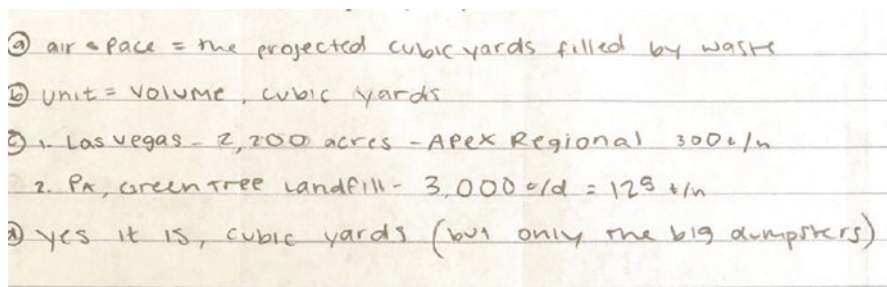 ⓐ air space = the projected cubic yards filled by waste
ⓑ unit = volume, cubic yards
ⓒ 1. Las vegas - 2,200 acres - Apex Regional 300 t/h
2. PA, Green Tree Landfill - 3,000 t/d = 125 t/h
ⓓ yes it is, cubic yards (but only the big dumpsters)